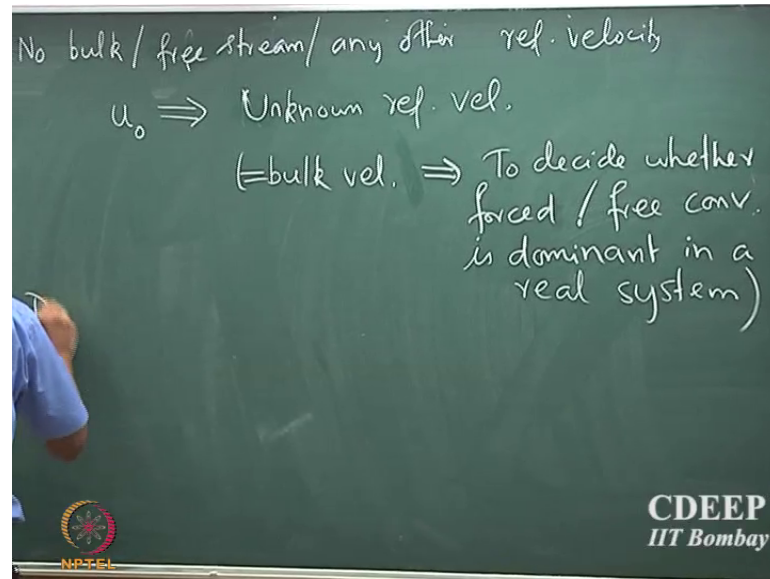 No bulk / free stream / any other ref. velocity
u₀ ⇒ Unknown ref. vel.
(=bulk vel. ⇒ To decide whether
forced / free conv.
is dominant in a
real system)
CDEEP
IIT Bombay
NPTEL